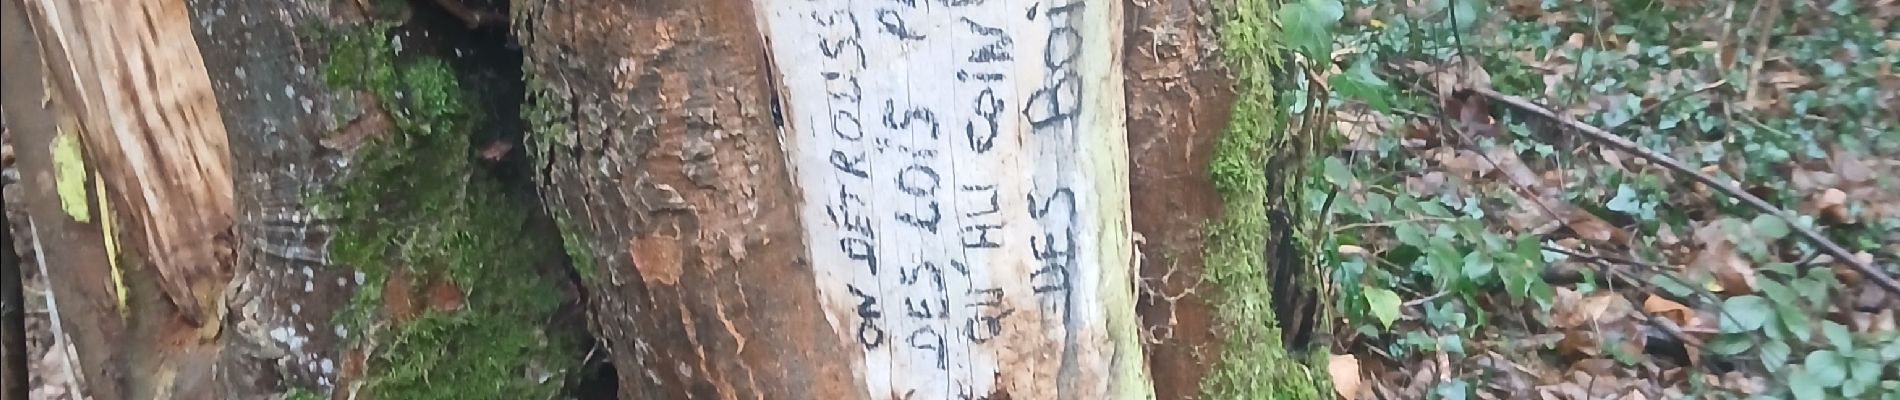 ON DÉTROUSS
DES LOIS P
QU'HU COIN
DES BOI